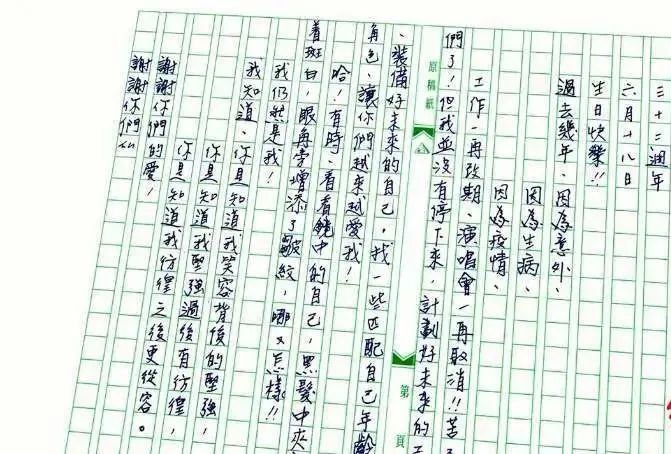 三十三週年
六月十八日
生日快樂!!
過去幾年、因為意外、
因為生病、
因為疫情、
工作一再改期、演唱會一再取消!!苦了
們了!但我並沒有停下來,計劃好未來的
原稿紙 第 頁
、裝備好未來的自己,找一些匹配自己年齡
角色、讓你們越來越愛我!
哈!有時、看看鏡中的自己,黑髮中夾
着斑白,眼角旁增添了皺紋,哪又怎樣!!
我仍然是我!
我知道、你是知道我笑容背後的堅強,
你是知道我堅強過後有彷徨,
你是知道我彷徨之後更從容。
謝謝你們的愛!
謝謝你們